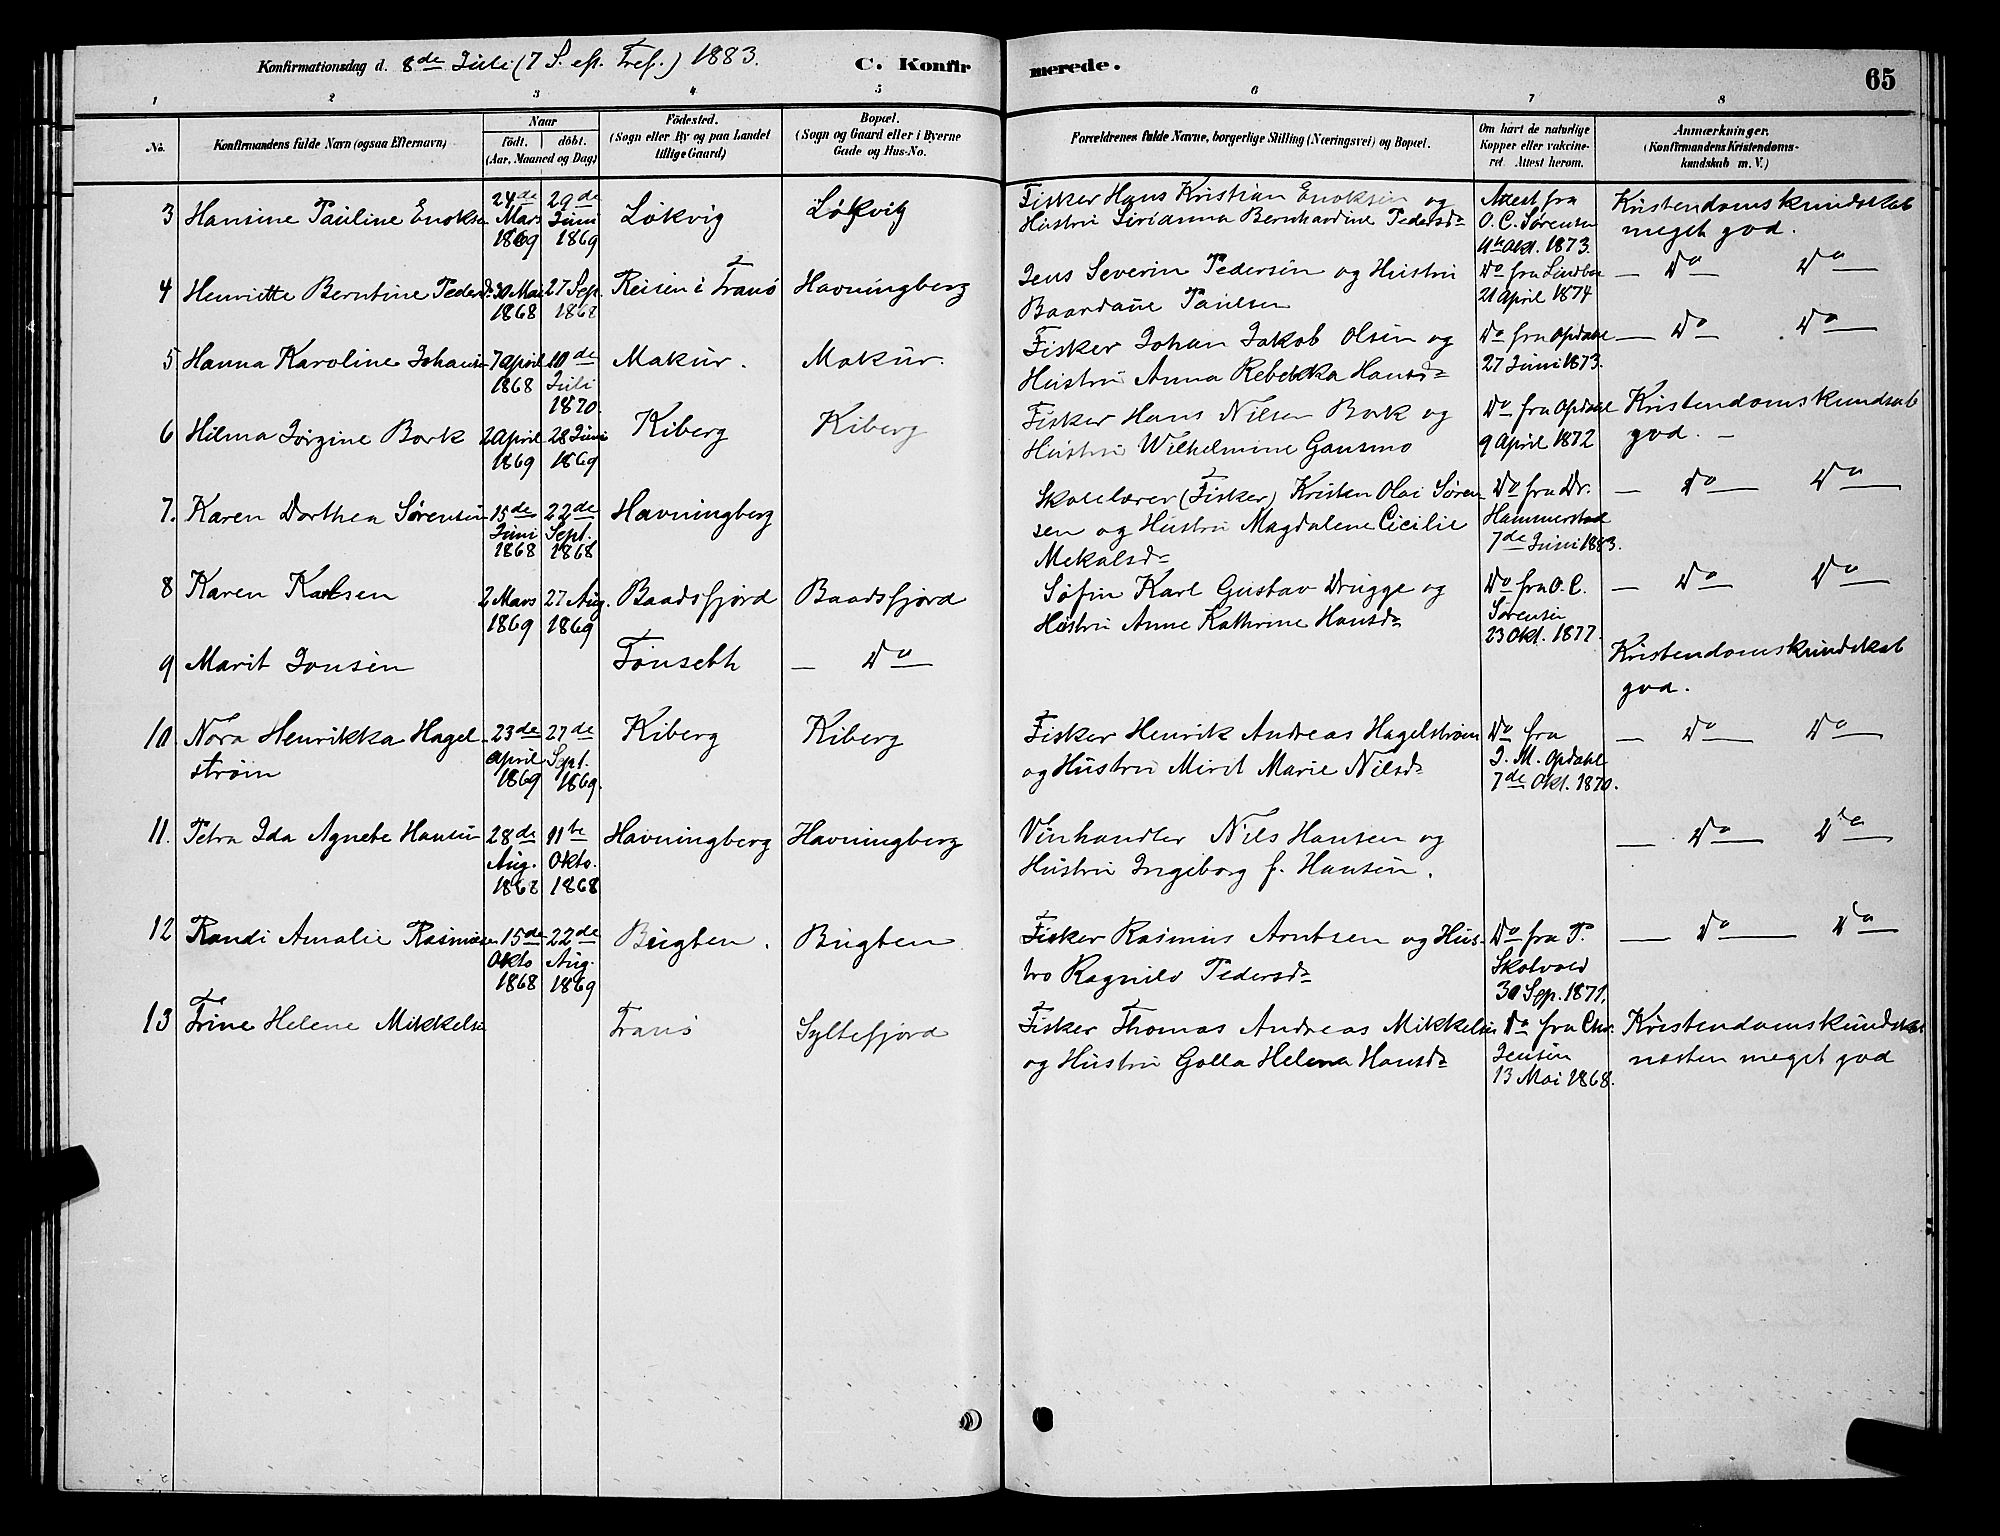 Konfirmationsdag d. 8de Juli (7 S. eft. Tref.) 1883. C. Konfirmerede. 65
1 2 3 4 5 6 7 8
No.
Konfirmandens fulde Navn (ogsaa Efternavn)
Naar
födt. döbt.
(Aar, Maaned og Dag)
Födested.
(Sogn eller By og paa Landet
tillige Gaard)
Bopæl.
(Sogn og Gaard eller i Byerne
Gade og Hus-No.
Forældrenes fulde Navne, borgerlige Stilling (Næringsvei) og Bopæl.
Om havt de naturlige
Kopper eller vakcine-
ret. Attest herom.
Anmærkninger.
(Konfirmandens Kristendoms-
kundskab m. V.)
3 Hansine Pauline Enoksen
24de Mars 1869
29de Juni 1869
Løkvig
Løkvig
Fisker Hans Kristian Enoksen og
Hustru Sirianna Bernhardine Pedersdr
Attest fra
O. C. Sørensen
4de Okt. 1873.
Kristendomskundskab
meget god.
4 Henriette Berntine Pedersdr
30 Mai 1868
27 Sep. 1868
Reisen i Tranö
Havningberg
Jens Severin Pedersen og Hustru
Baardane Paulsen
Do fra Lindboe
21 April 1874
— Do — Do —
5 Hanna Karoline Johansen
7 April 1868
10de Juli 1870.
Makur.
Makur.
Fisker Johan Jakob Olsen og
Hustru Anna Rebekka Hansdr
Do fra Opdahl
27 Juni 1873.
— Do — Do —
6 Hilma Jørgine Bork
2 April 1869
28 Juni 1869
Kiberg
Kiberg
Fisker Hans Nilsen Bork og
Hustru Wilhelmine Gausmo
Do fra Opdahl
9 April 1872
Kristendomskundsab
god. —
7. Karen Dorthea Sørensen
15de Juni 1868
22de Sept. 1868
Havningberg
Skolelærer (Fisker) Kristen Olai Søren-
sen og Hustru Magdalene Cicilie
Mekalsdr
Do fra Dr.
Hammerstad
7de Juni 1883.
— Do — Do —
8 Karen Karlsen
2 Mars 1869
27 Aug. 1869
Baadsfjord
Baadsfjord
Søfin Karl Gustav Drugge og
Hustru Anne Kathrine Hansdr
Do fra O. C.
Sørensen
23 Okt. 1877.
— Do — Do —
9 Marit Jonsen
Tönseth
— Do —
Kristendomskundskab
god.
10. Nora Henrikka Hagel-
strøm
23de April 1869
27de Sept. 1869.
Kiberg
Kiberg
Fisker Henrik Andreas Hagelstrøm
og Hustru Mirit Marie Nilsdr
Do fra
J. M. Opdahl
7de Okt. 1870.
— Do — Do —
11. Petra Ida Agnete Hansen
28de Aug. 1868
11te Okto. 1868
Havningberg
Havningberg
Vinhandler Nils Hansen og
Hustru Ingeborg f. Hansen.
— Do — Do —
12 Randi Amalie Rasmusen
15de Okto 1868
22de Aug. 1869
Bugten.
Bugten
Fisker Rasmus Arntsen og Hus-
tro Ragnild Pedersdr
Do fra P.
Skotvold
30 Sep. 1871.
— Do — Do —
13 Trine Helene Mikkelsen
Tranö
Syltefjord
Fisker Thomas Andreas Mikkelsen
og Hustru Golla Helena Hansdr
Do fra Chr.
Jensen
13 Mai 1868.
Kristendomskundskab
næsten meget god